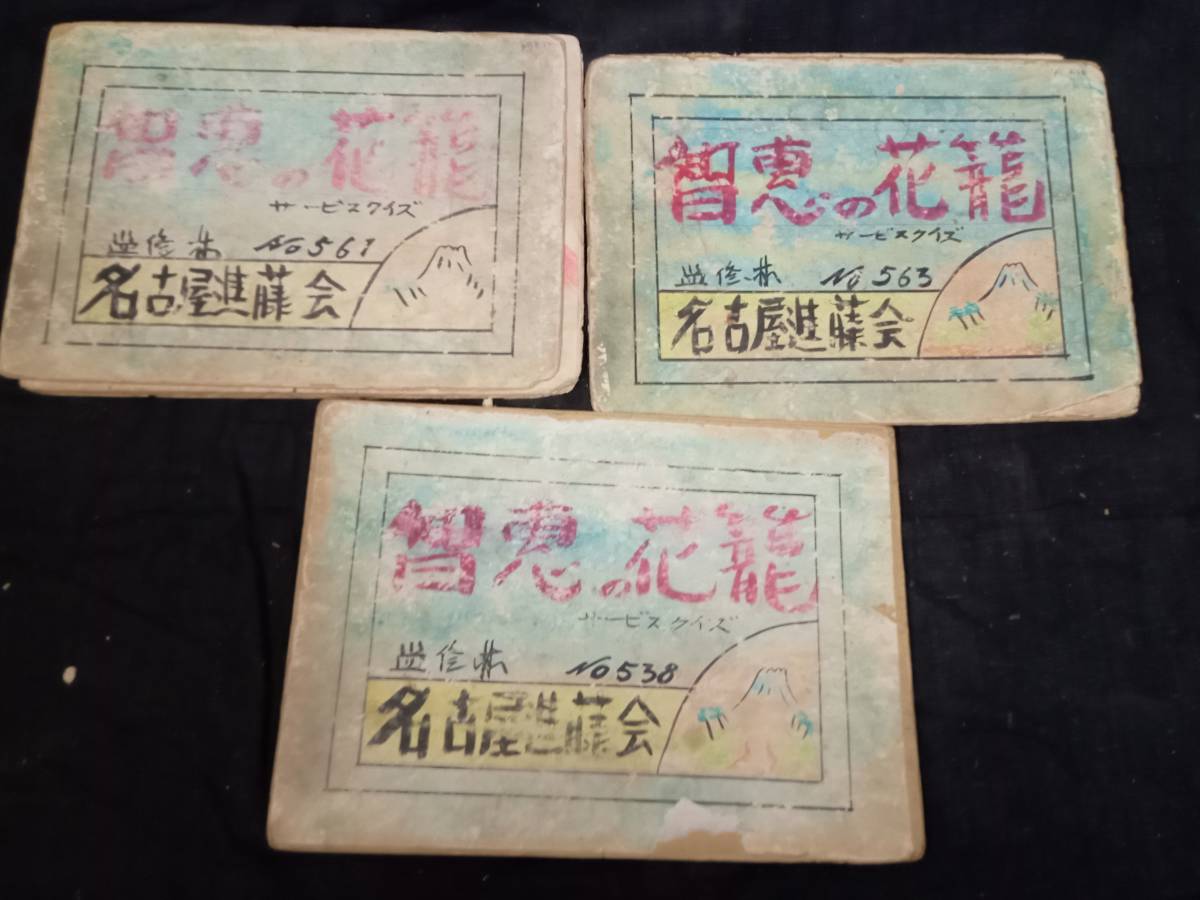 智恵の花籠
サービスクイズ
監修林 No 561
名古屋進藤会
智恵の花籠
サービスクイズ
監修林 No 563
名古屋進藤会
智恵の花籠
サービスクイズ
監修林 No 538
名古屋進藤会